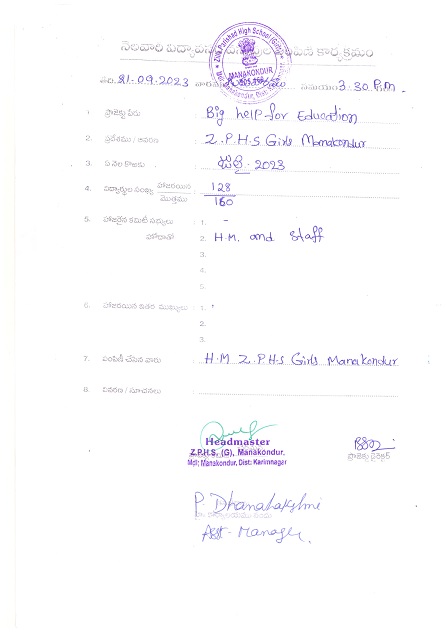 నెలవారీ విద్యా పంపిణీ కార్యక్రమం
Zilla Parishad High School (Girls)
MANAKONDUR
505 469
తేది: 21.09.2023 సమయం 3.30 P.m
1. ప్రాజెక్టు పేరు Big help for Education
2. ప్రదేశము / వివరణ Z.P.H.S Girls Manakondur
3. ఏ నెల కొరకు జులై 2023
4. విద్యార్థుల సంఖ్య హాజరయిన / మొత్తము 128 / 160
5. హాజరైన కమిటీ సభ్యులు 1. -
హోదాతో 2. H.M. and Staff
3.
4.
5.
6. హాజరయిన ఇతర ముఖ్యులు 1.
2.
3.
7. పంపిణీ చేసిన వారు H.M Z.P.H.S Girls Manakondur
8. వివరణ / సూచనలు
Headmaster
Z.P.H.S. (G), Manakondur.
Mdl; Manakondur, Dist: Karimnagar
ప్రాజెక్టు డైరెక్టర్
P. Dhanalakshmi
Asst. Manager.